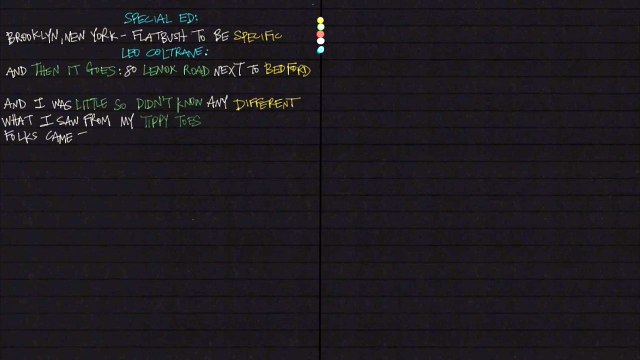 SPECIAL ED:
BROOKLYN, NEW YORK - FLATBUSH TO BE SPECIFIC
LEO COLTRANE:
AND THEN IT GOES: 80 LENOX ROAD NEXT TO BEDFORD
AND I WAS LITTLE SO DIDN'T KNOW ANY DIFFERENT
WHAT I SAW FROM MY TIPPY TOES
FOLKS CAME -